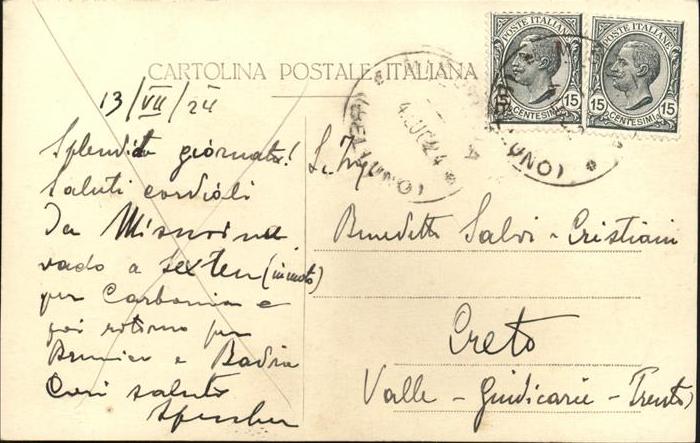 CARTOLINA POSTALE ITALIANA
POSTE ITALIANE
15 CENTESIMI 15
POSTE ITALIANE
15 CENTESIMI 15
(BELLUNO)
(BELLUNO)
13/VII/24
Splendida giornata!
Saluti cordiali
Da Misurina
vado a Sexten (in moto)
per Carbonin e
poi ritorno per
Brunico e Badia
Cari saluti
Benedetto Salvi-Cristiani
Creto
Valle - Giudicarie - (Trento)